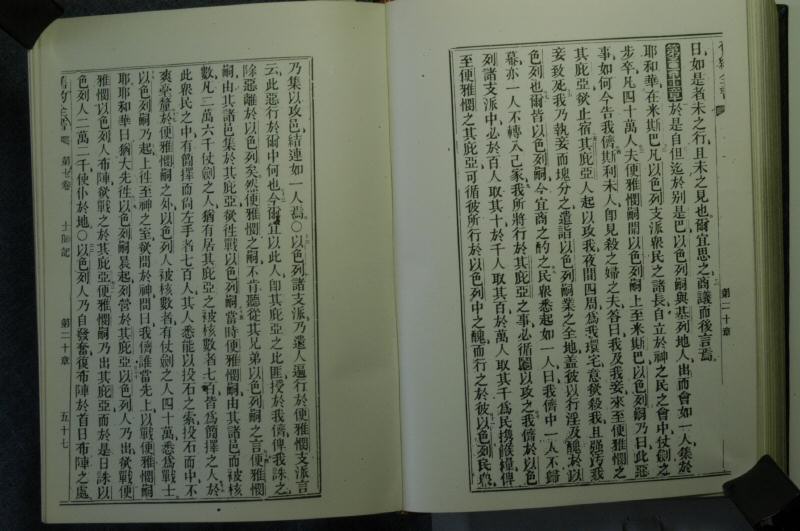 日如是者未之行且未之見也爾宜思之商議而後言焉
第二十章於是自但迄於別是巴以色列嗣與基列地人出而會如一人集於
耶和華在米斯巴凡以色列支派衆民之諸長自立於神之民之會中仗劍之
步卒凡四十萬人夫便雅憫嗣聞以色列嗣上至米斯巴以色列嗣乃曰此惡
事如何今告我儕斯利未人卽見殺之婦之夫答曰我及我妾來至便雅憫之
其庇亞欲止宿其庇亞人起以攻我夜間四周爲我環宅意欲殺我且强污我
妾致死我乃執妾而塊分之遣詣以色列嗣業之全地蓋彼以行淫及醜於以
色列也爾皆以色列嗣今宜商之酌之民衆悉起如一人曰我儕中一人不歸
幕亦一人不轉入己家我所將行於其庇亞之事必循鬮以攻之我儕於以色
列諸支派中必於百人取其十於千人取其百於萬人取其千爲民携餱糧俾
至便雅憫之其庇亞可循彼所行於以色列中之醜而行之於彼以色列民衆
第二十章
乃集以攻邑結連如一人焉○以色列諸支派乃遣人遍行於便雅憫支派言
云此惡行於爾中何也今爾宜以此人卽其庇亞之比匪授於我儕俾我誅之
除惡離於以色列矣然便雅憫之嗣不肯聽從其兄弟以色列嗣之言便雅憫
嗣由其諸邑集於其庇亞欲徃戰以色列嗣當時便雅憫嗣由其諸邑而被核
數凡二萬六千仗劍之人猶有居其庇亞之被核數者七百皆爲簡擇之人於
此衆民之中有簡擇而尙左手者七百人其人悉能以投石之索投石而中不
爽毫釐於便雅憫嗣之外以色列人被核數者有仗劍之人四十萬悉爲戰士
以色列嗣乃起上徃至神之室欲問於神問曰我儕誰當先上以戰便雅憫嗣
耶耶和華曰猶大先徃以色列嗣晨起列營於其庇亞以色列人乃出欲戰便
雅憫以色列人布陣欲戰之於其庇亞便雅憫嗣乃出其庇亞而於是日誅以
色列人二萬二千使仆於地○以色列人乃自發奮復布陣於首日布陣之處
第七卷 士師記 第二十章 五十七